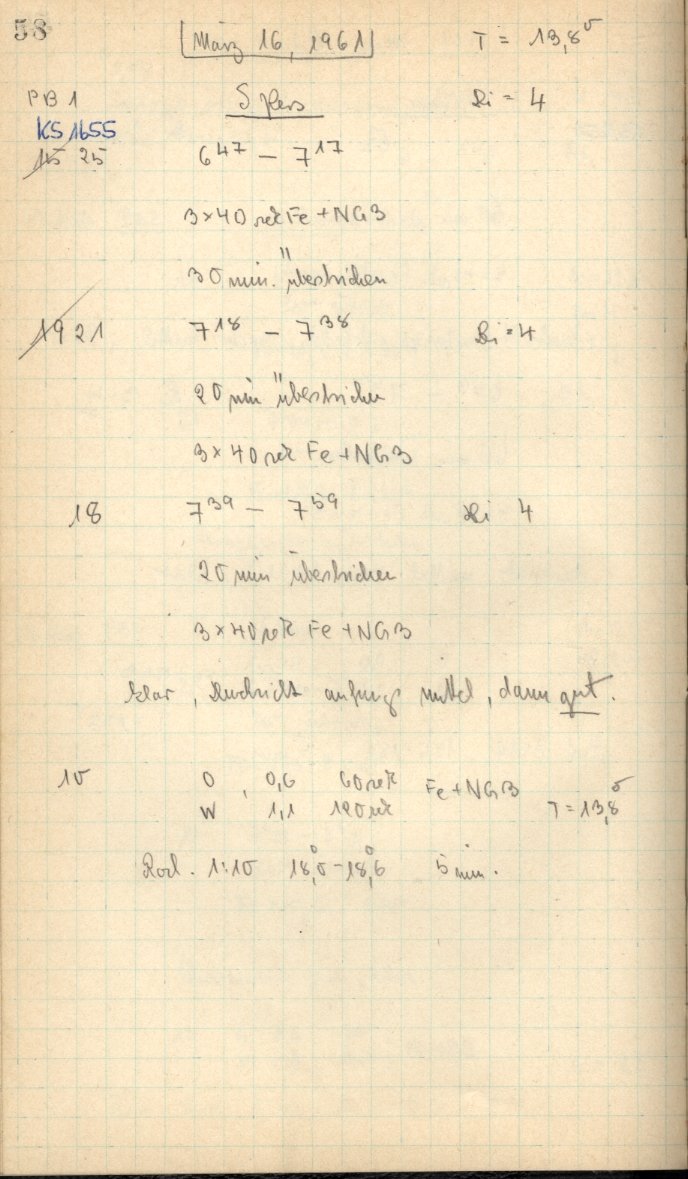 58 März 16, 1961 T = 13,8°
PB 1 S Pers Ri = 4
KS 1655
15 25 6 47 – 7 17
3×40 sek Fe + NG3
30 min. überstrichen
19 21 7 18 – 7 38 Ri = 4
20 min überstrichen
3×40 sek Fe + NG3
18 7 39 – 7 59 Ri 4
20 min überstrichen
3×40 sek Fe + NG3
klar, anfangs mittel, dann gut.
10 O , 0,6 60 sek Fe + NG3
W 1,1 120 sek T = 13,8°
Rod. 1:10 18,0° – 18,6° 5 min.